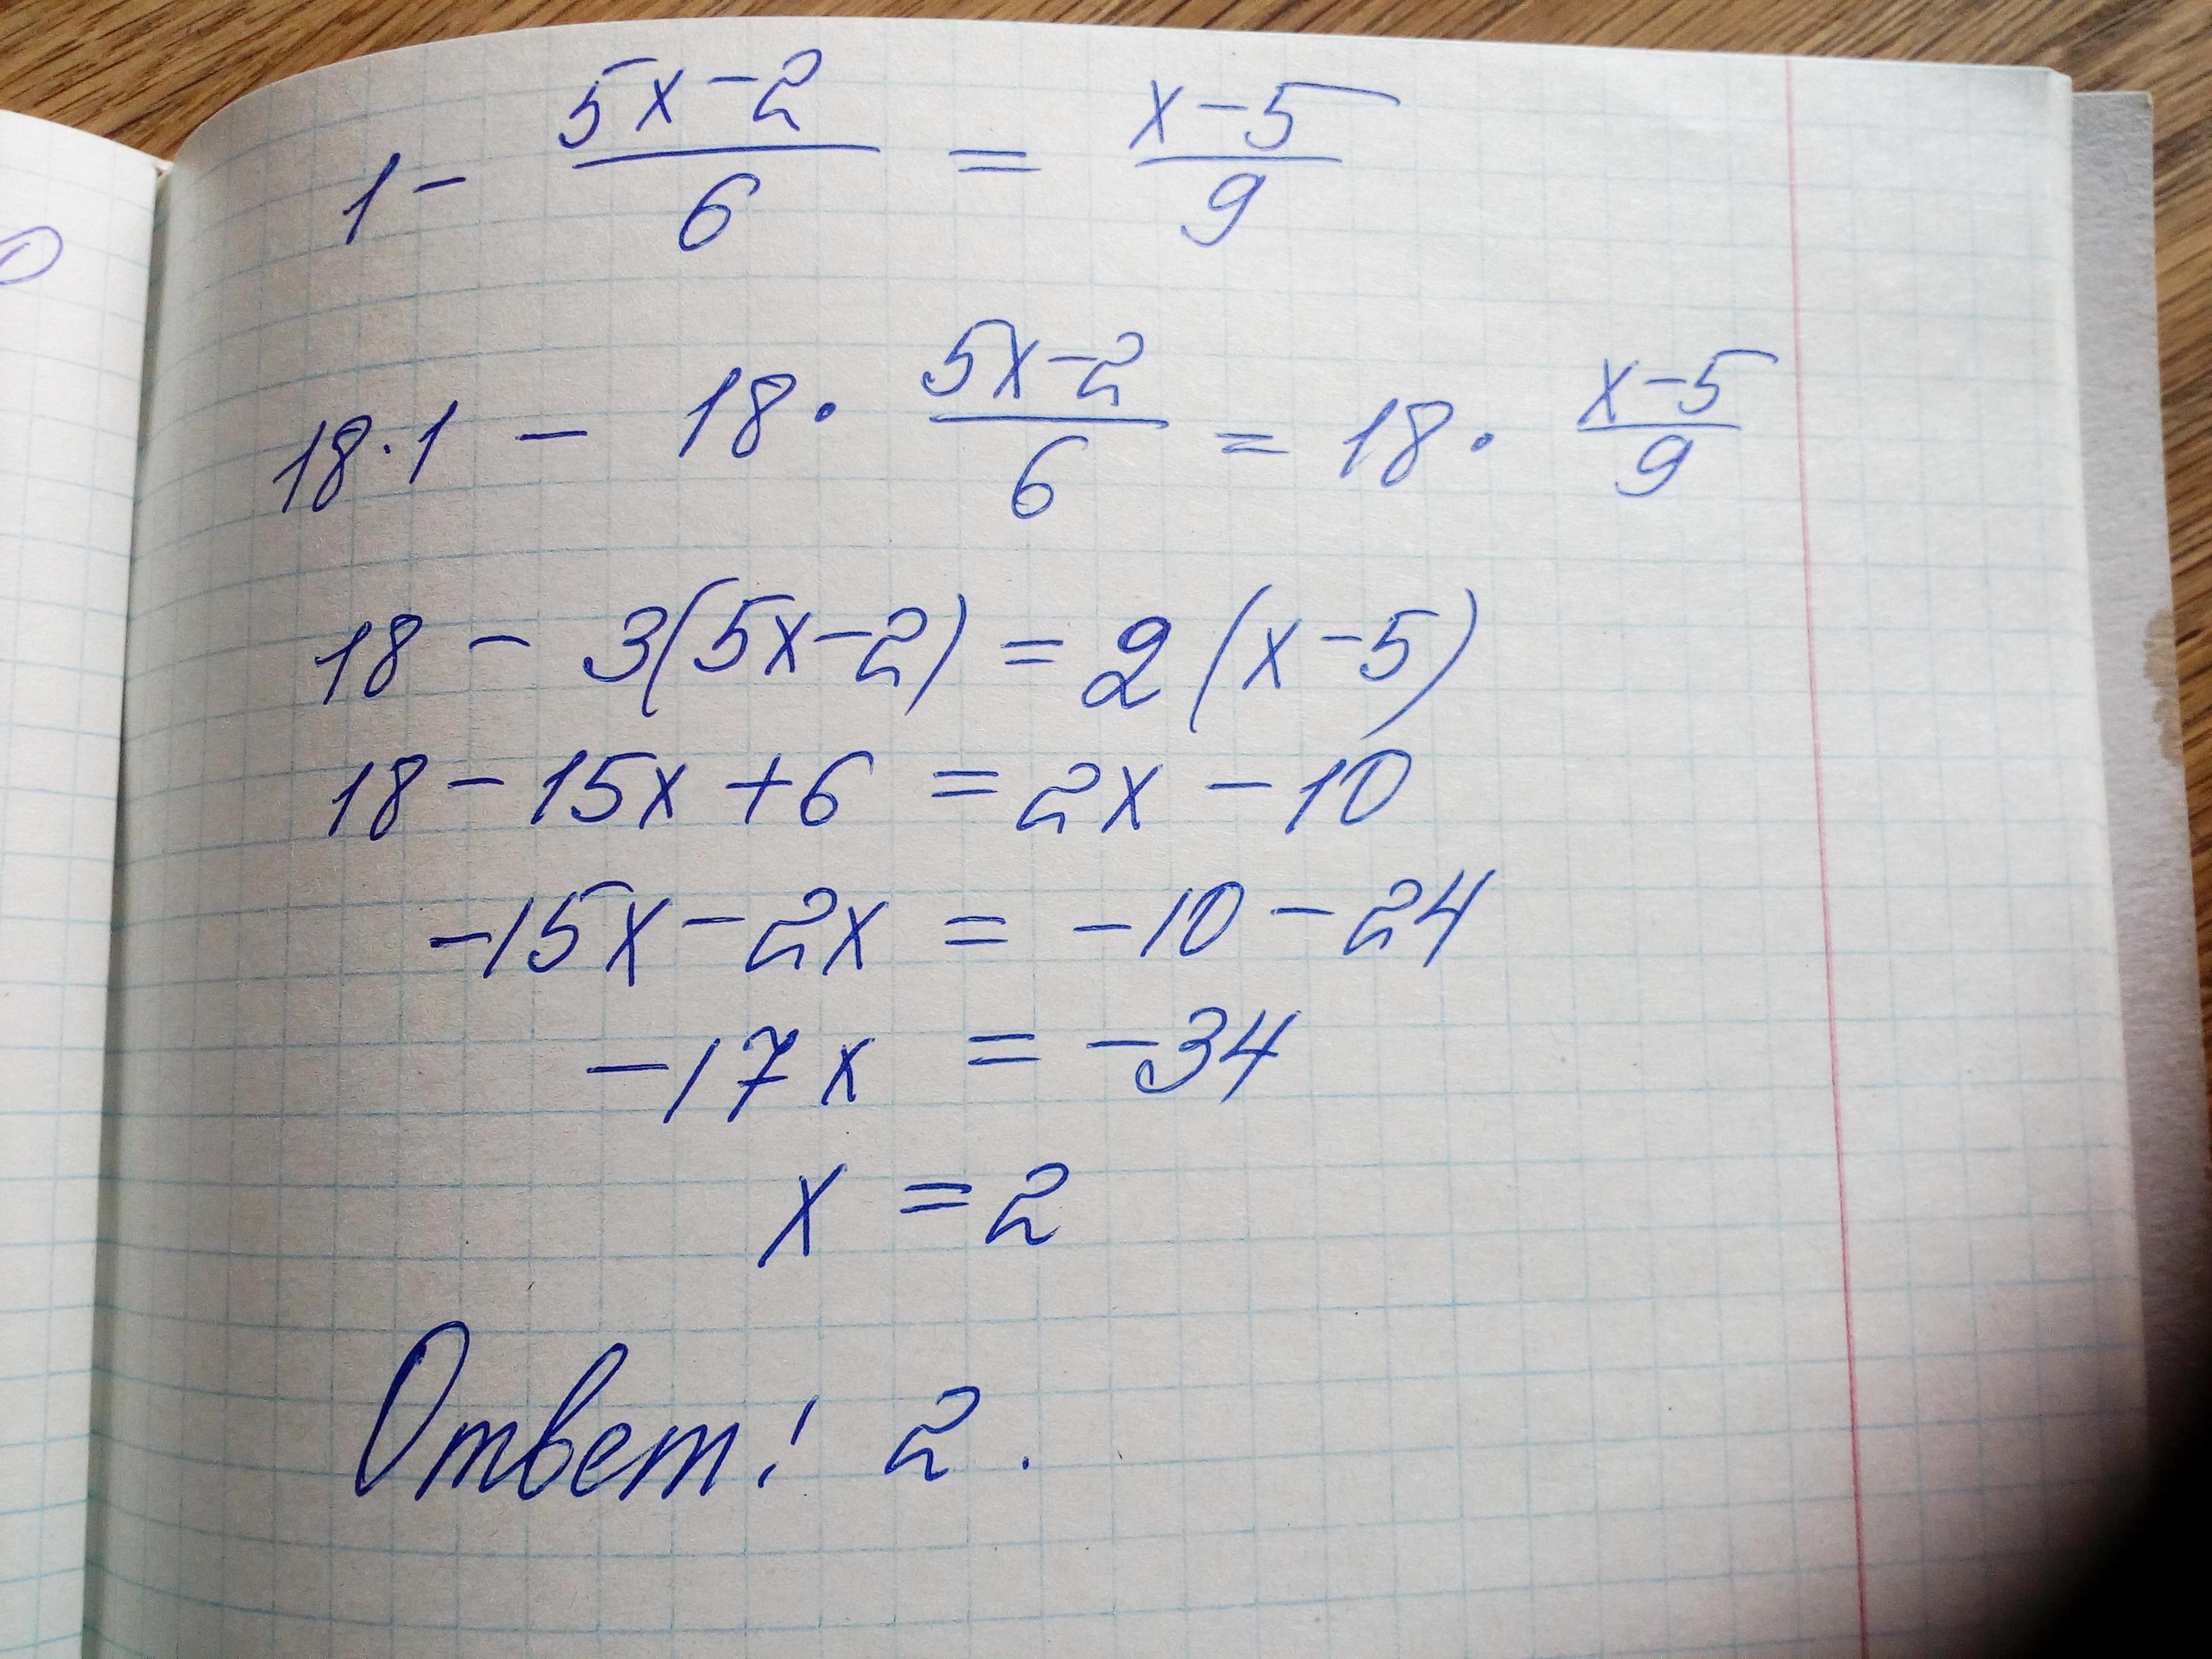 1 - (5x-2)/6 = (x-5)/9
18·1 - 18·(5x-2)/6 = 18·(x-5)/9
18 - 3(5x-2) = 2(x-5)
18 - 15x + 6 = 2x - 10
-15x - 2x = -10 - 24
-17x = -34
x = 2
Ответ: 2.